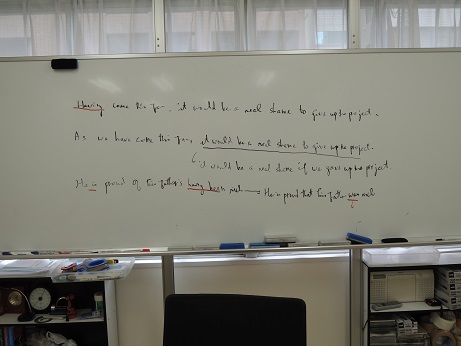 Having come this far, it would be a real shame to give up the project.
As we have come this far, it would be a real shame to give up the project.
it would be a real shame if we gave up the project.
He is proud of his father's having been rich → He is proud that his father was rich